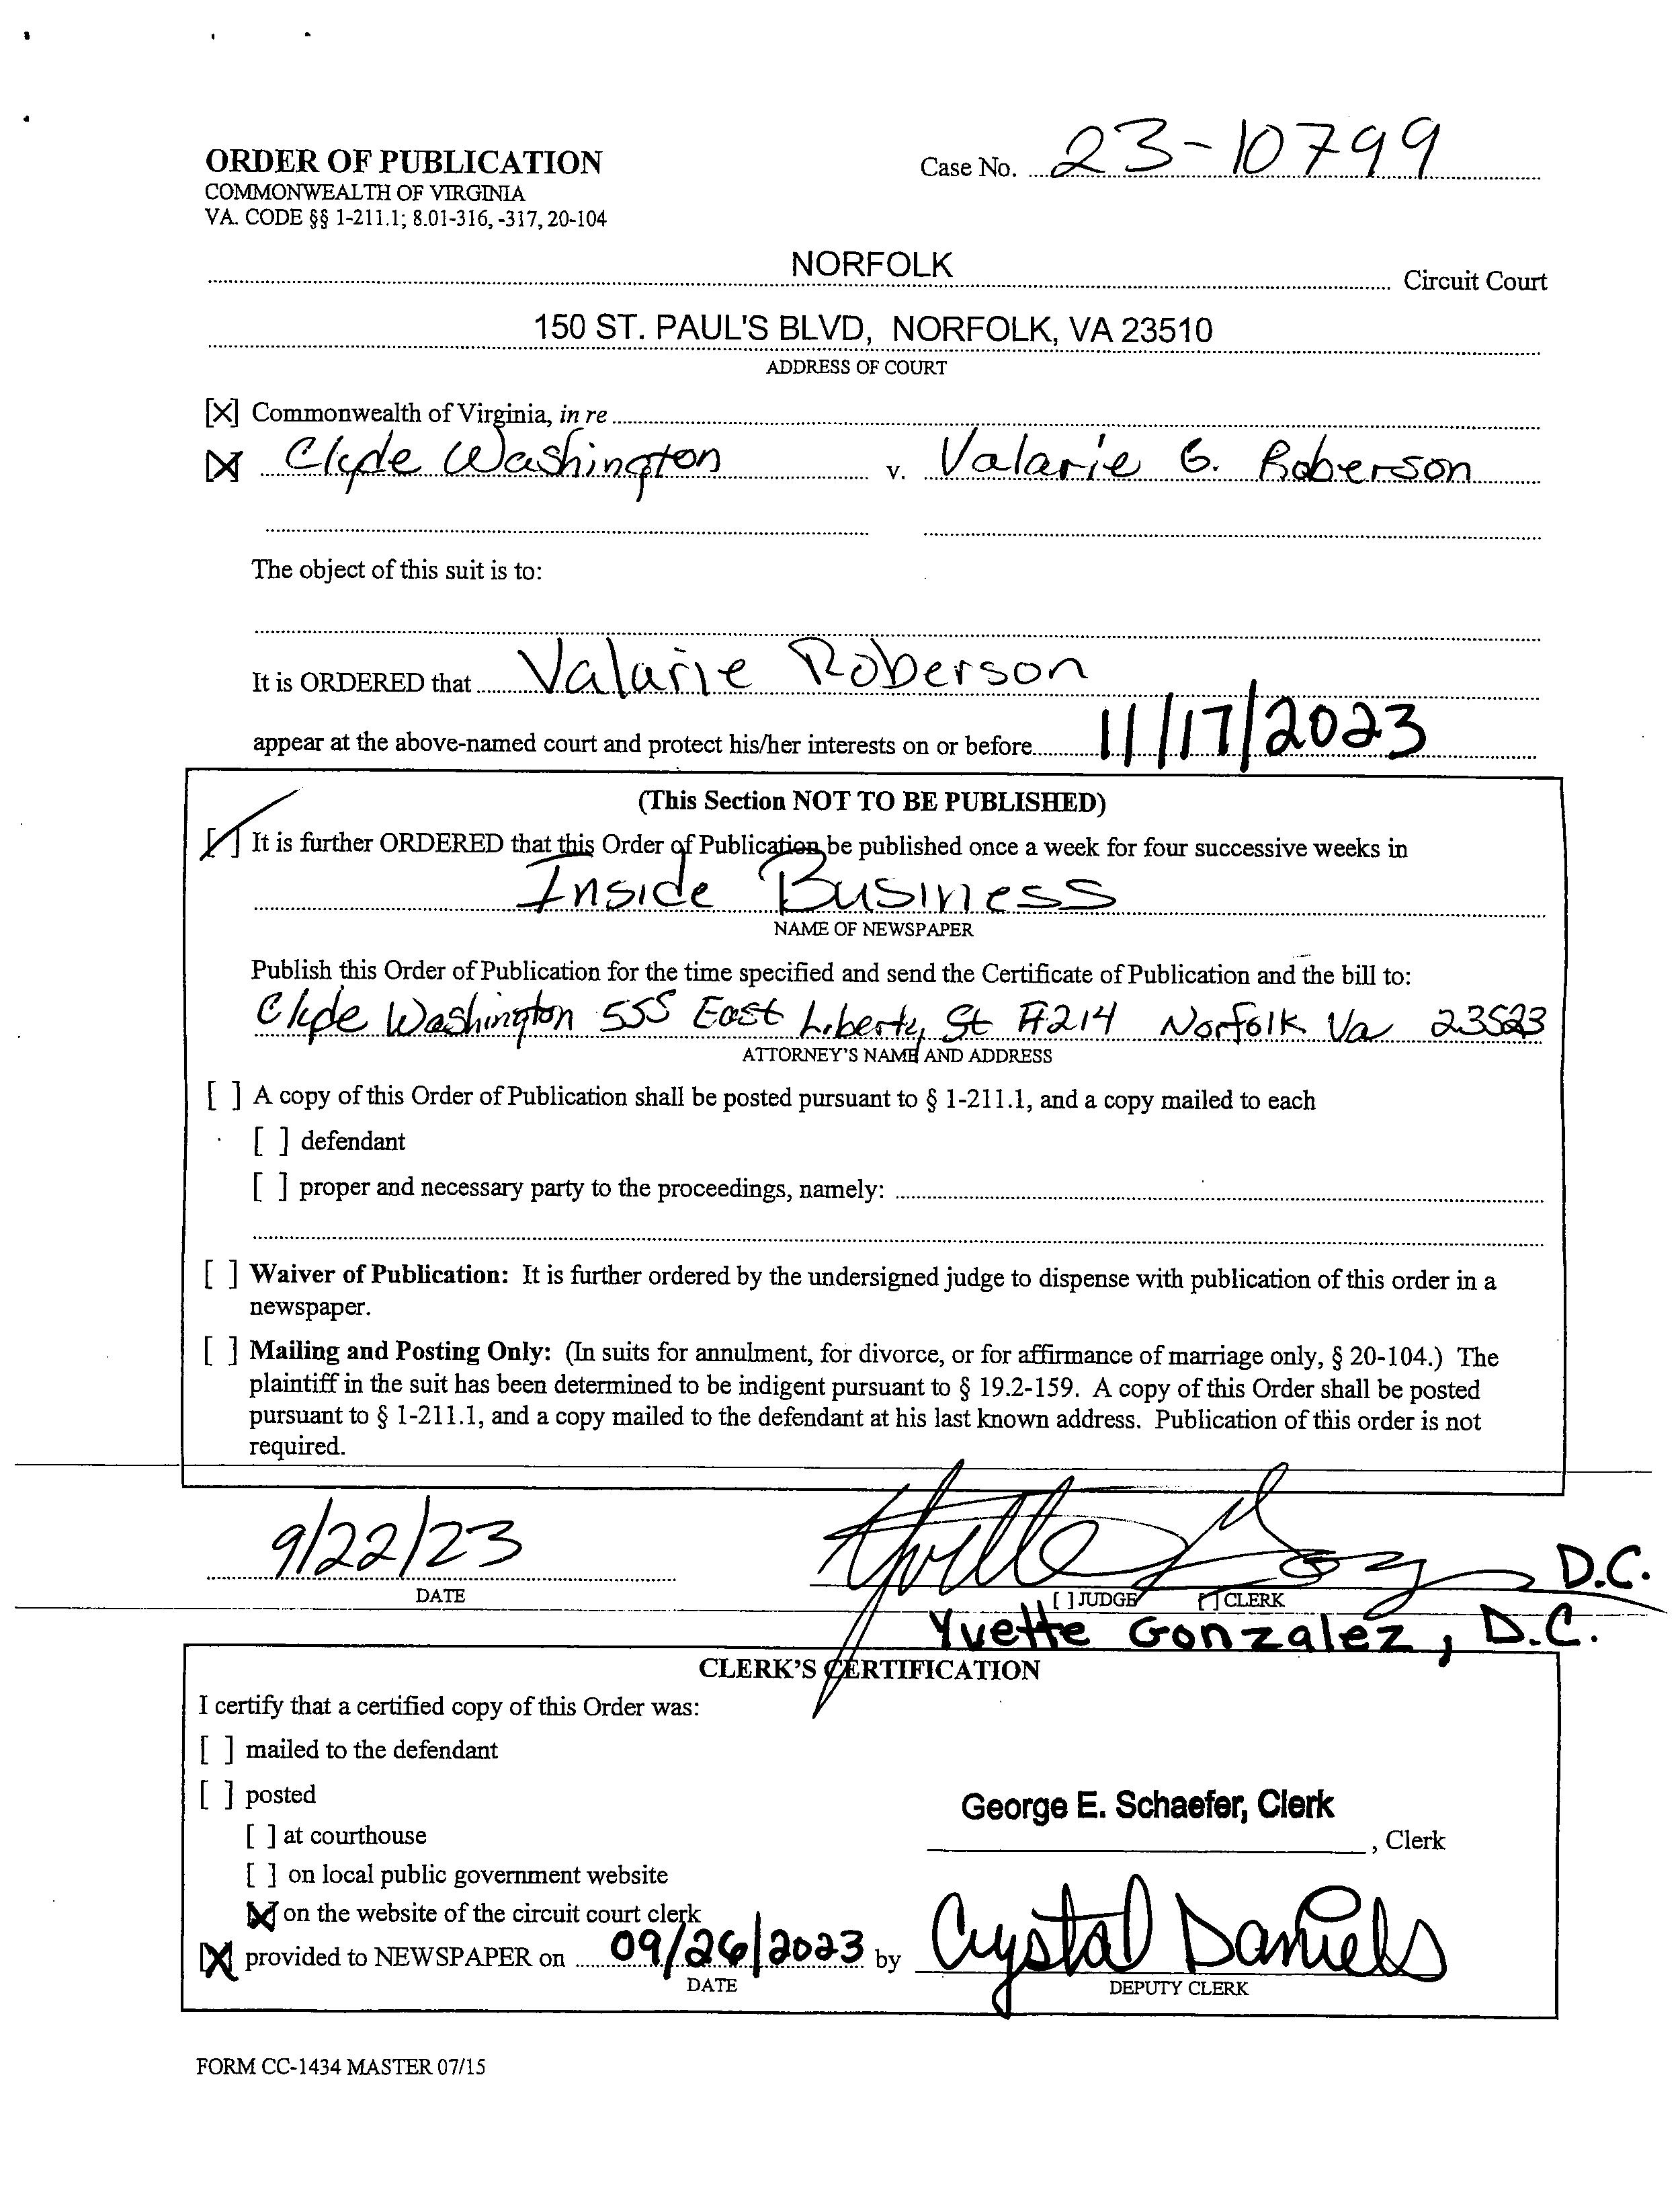 ORDER OF PUBLICATION
Case No. 23-10799
COMMONWEALTH OF VIRGINIA
VA. CODE §§ 1-211.1; 8.01-316, -317, 20-104
NORFOLK Circuit Court
150 ST. PAUL'S BLVD, NORFOLK, VA 23510
ADDRESS OF COURT
[X] Commonwealth of Virginia, in re
[X] Clyde Washington v. Valarie G. Roberson
The object of this suit is to:
It is ORDERED that Valarie Roberson
appear at the above-named court and protect his/her interests on or before 11/17/2023
(This Section NOT TO BE PUBLISHED)
[✓] It is further ORDERED that this Order of Publication be published once a week for four successive weeks in
Inside Business
NAME OF NEWSPAPER
Publish this Order of Publication for the time specified and send the Certificate of Publication and the bill to:
Clyde Washington 555 East Liberty St #214 Norfolk Va 23523
ATTORNEY'S NAME AND ADDRESS
[ ] A copy of this Order of Publication shall be posted pursuant to § 1-211.1, and a copy mailed to each
[ ] defendant
[ ] proper and necessary party to the proceedings, namely:
[ ] Waiver of Publication: It is further ordered by the undersigned judge to dispense with publication of this order in a
newspaper.
[ ] Mailing and Posting Only: (In suits for annulment, for divorce, or for affirmance of marriage only, § 20-104.) The
plaintiff in the suit has been determined to be indigent pursuant to § 19.2-159. A copy of this Order shall be posted
pursuant to § 1-211.1, and a copy mailed to the defendant at his last known address. Publication of this order is not
required.
9/22/23 Yvette Gonzalez D.C.
DATE [ ] JUDGE [✓] CLERK
Yvette Gonzalez, D.C.
CLERK'S CERTIFICATION
I certify that a certified copy of this Order was:
[ ] mailed to the defendant
[ ] posted
George E. Schaefer, Clerk
[ ] at courthouse
, Clerk
[ ] on local public government website
[X] on the website of the circuit court clerk
[X] provided to NEWSPAPER on 09/26/2023 by Crystal Daniels
DATE DEPUTY CLERK
FORM CC-1434 MASTER 07/15